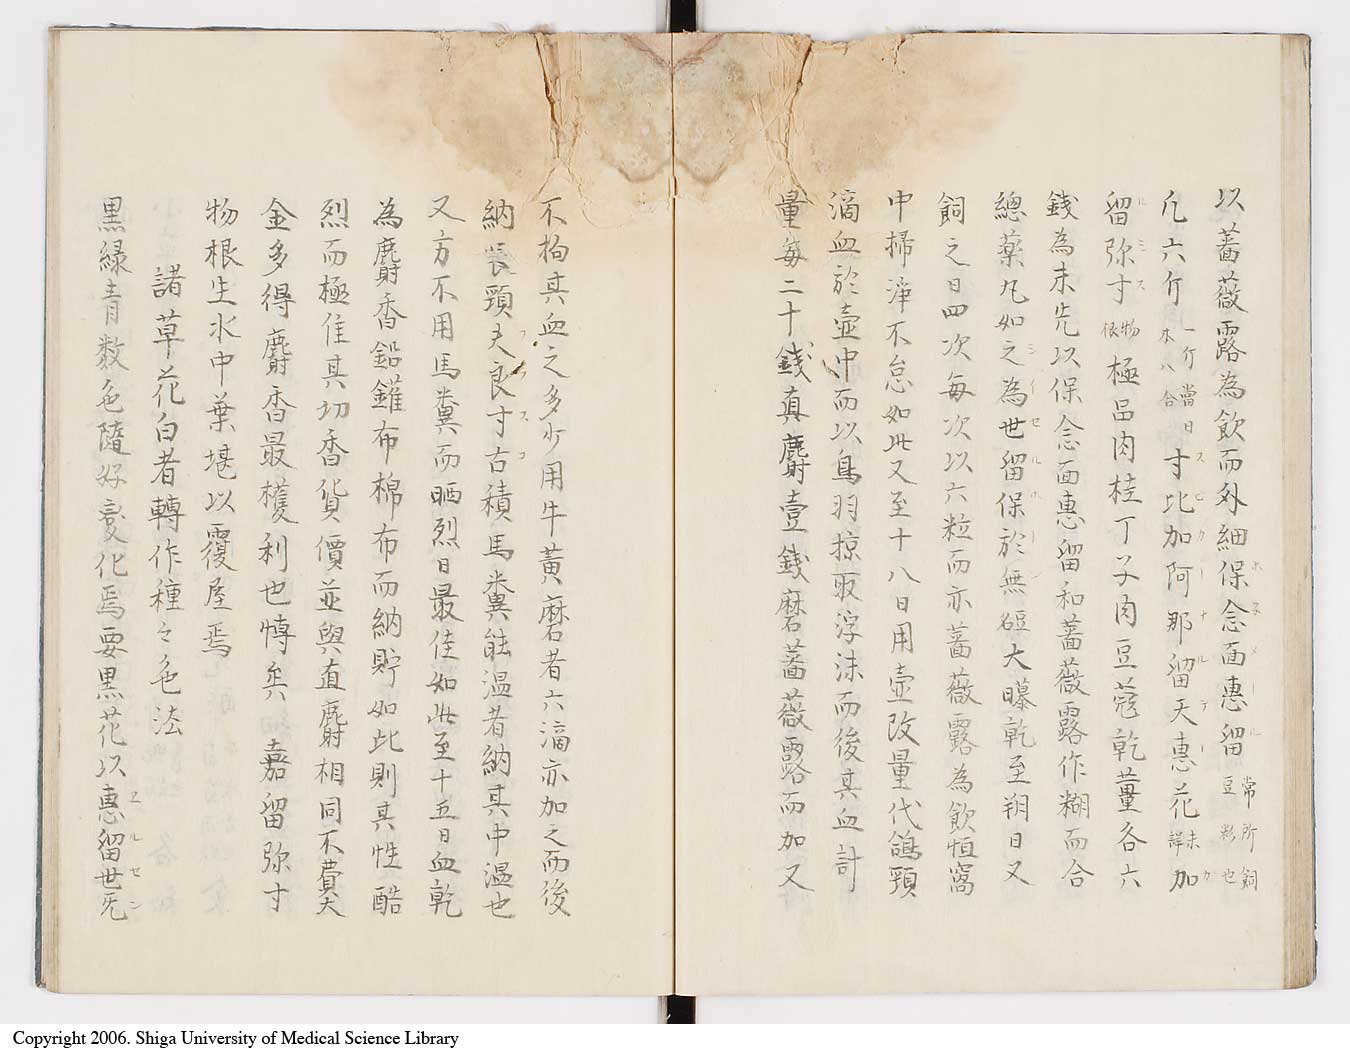 以薔薇露為飲而外細保念面惠留常所飼豆粉也
凡六斤一斤當日本八合寸比加阿那留天惠花未詳加
留弥寸物根極品肉桂丁子肉豆蔻乾薑各六
錢為末先以保念面惠留和薔薇露作糊而合
總藥丸如之為世留保於無碮大曝乾至朔日又
飼之日四次每次以六粒而亦薔薇露為飲恒窩
中掃淨不怠如此又至十八日用壺改量代鴿頸
滴血於壺中而以鳥羽掠取浮沫而後其血計
量每二十錢真麝壹錢磨薔薇露而加又
不拘其血之多少用牛黃磨者六滴亦加之而後
納長頸夫良寸古積馬糞能温者納其中温也
又方不用馬糞而晒烈日最佳如此至十五日血乾
為麝香鉛鑵布棉布而納貯如此則其性酷
烈而極佳其切香貨價並與真麝相同不費大
金多得麝香最獲利也慱矣 嘉留弥寸
物根生水中葉堪以覆屋焉
諸草花白者轉作種々色法
黒緑青数色隨好変化焉要黒花以惠留世先
ホ子メール
スヒカーナルデーカ
ルミス
シイセルホーン
フラスコ
エルセン